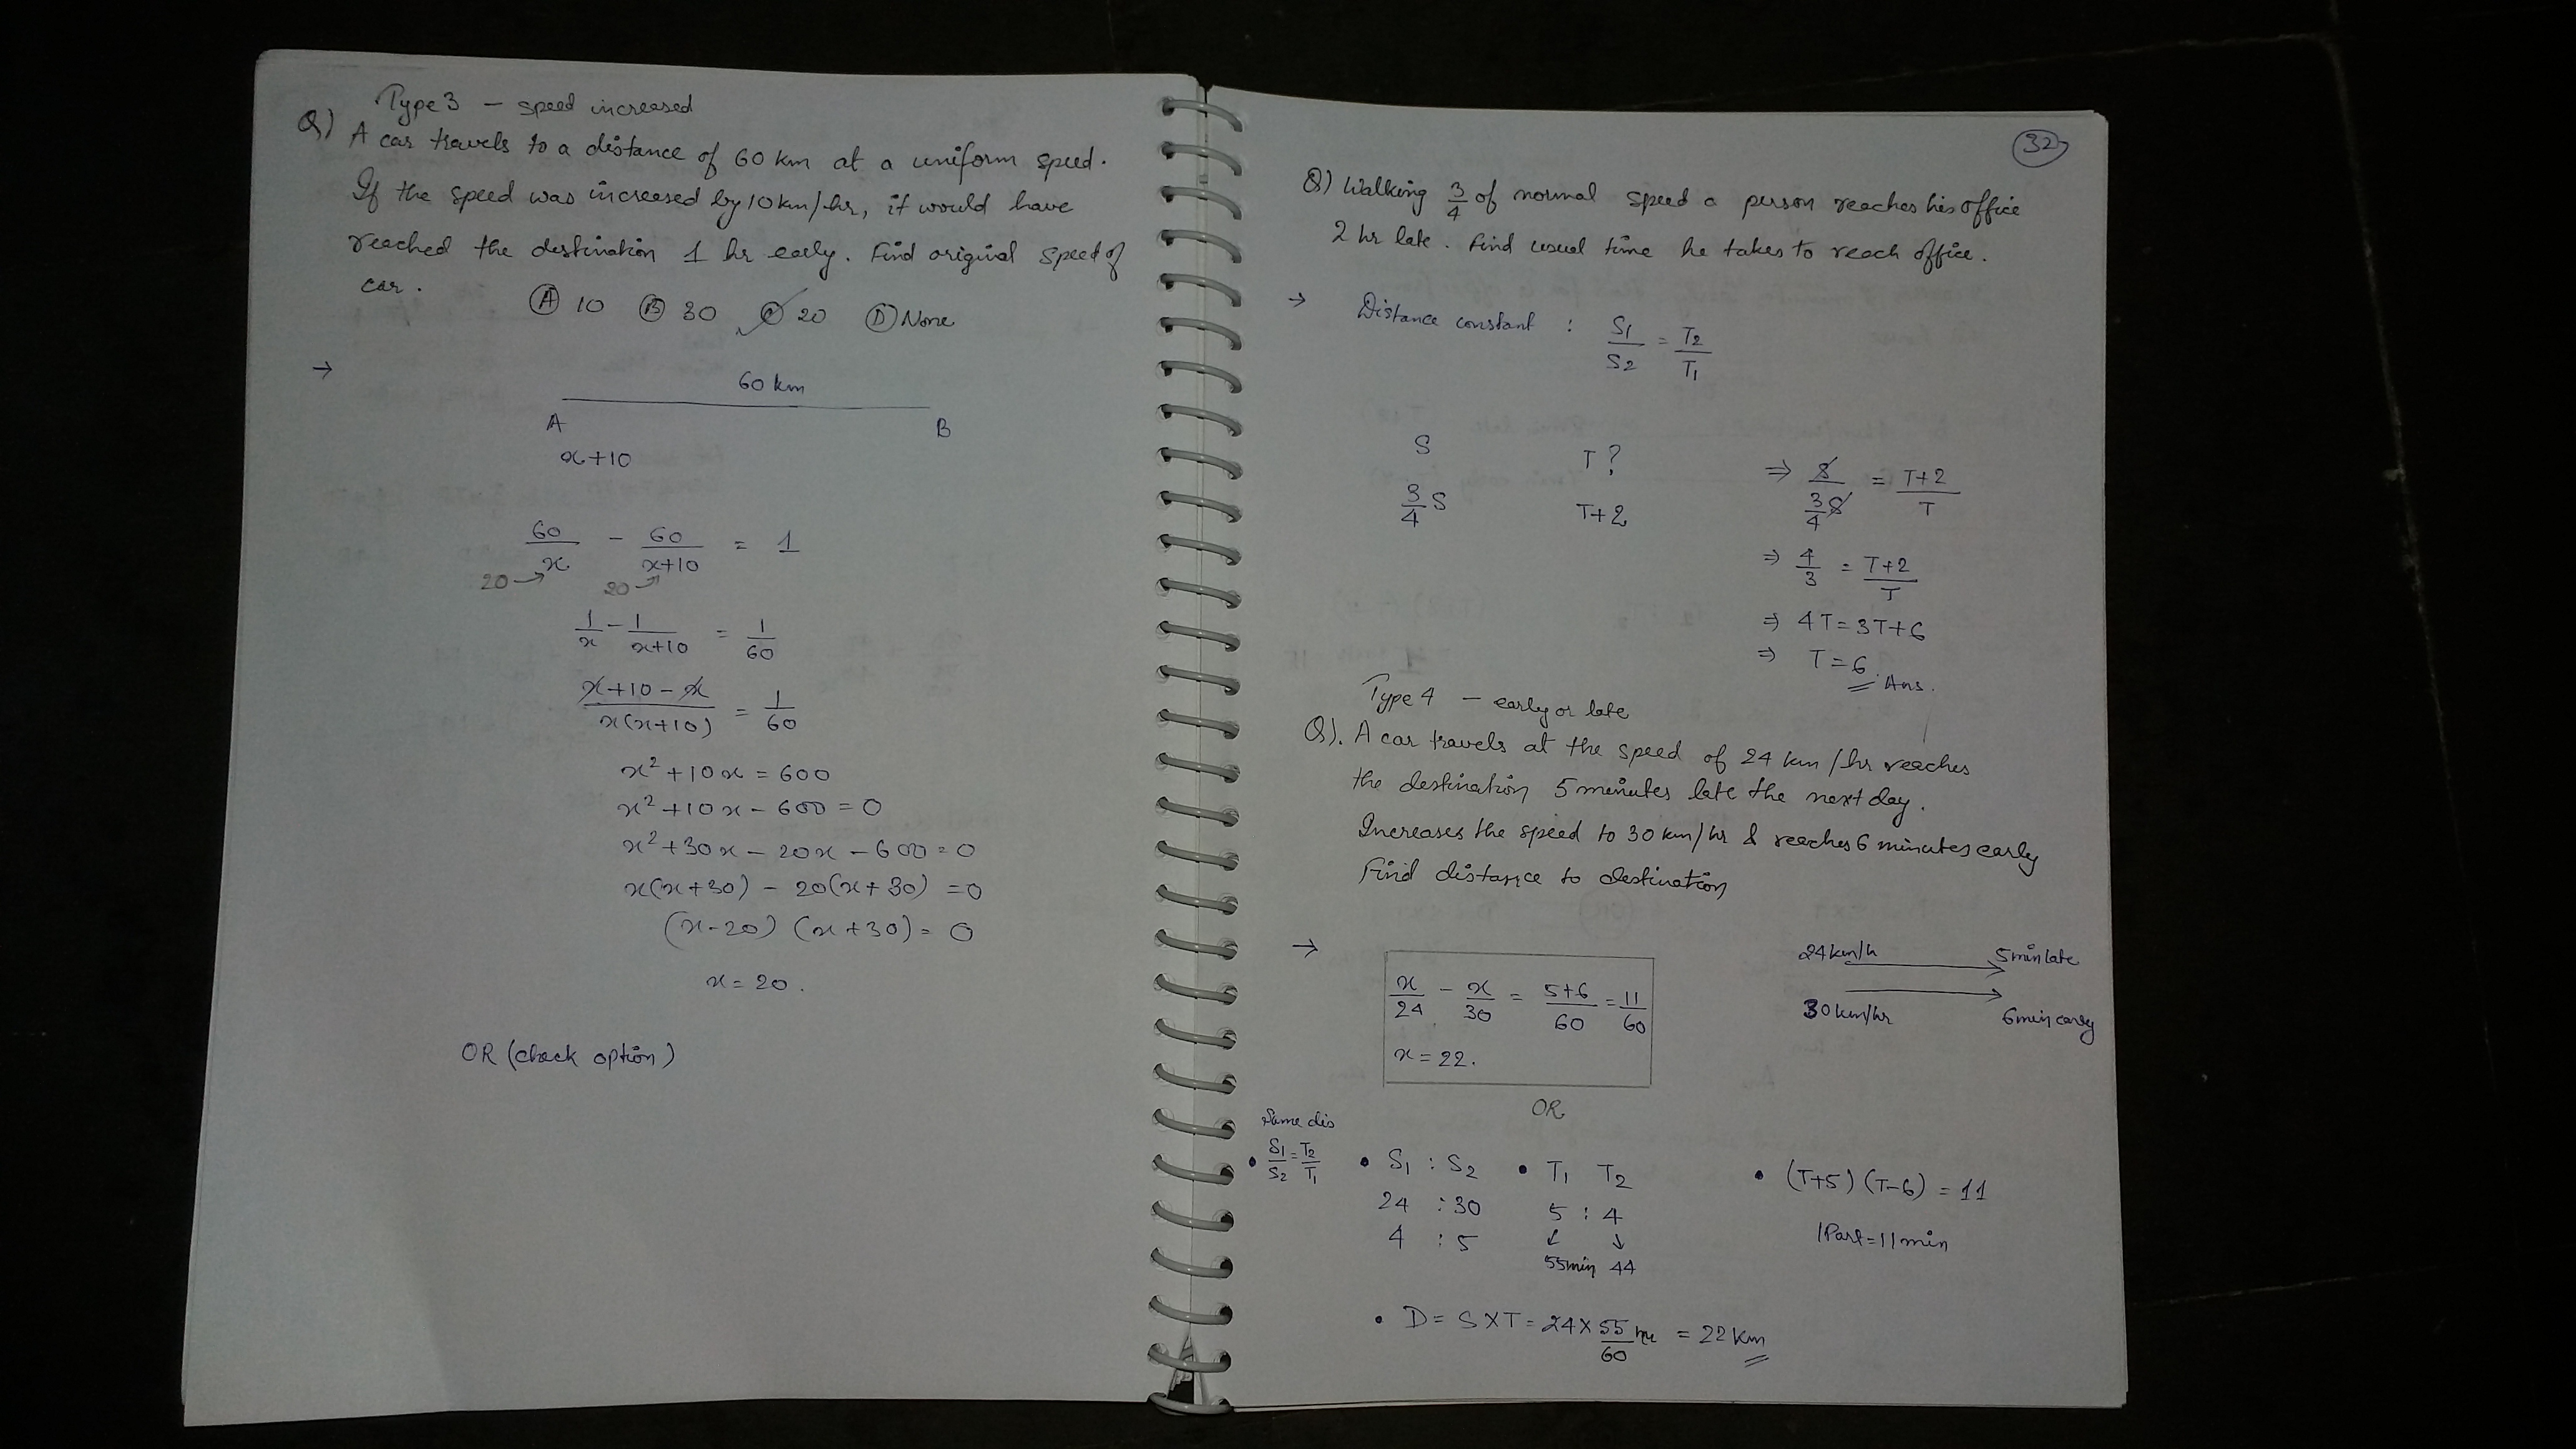 Type 3 – speed increased
Q) A car travels to a distance of 60 km at a uniform speed.
If the speed was increased by 10 km/hr, it would have
reached the destination 1 hr early. Find original speed of
car.
Ⓐ 10 Ⓑ 30 Ⓒ 20 Ⓓ None
→
60 km
A B
x+10
60/x - 60/(x+10) = 1
20→ 20→
1/x - 1/(x+10) = 1/60
(x+10-x)/(x(x+10)) = 1/60
x² + 10x = 600
x² + 10x - 600 = 0
x² + 30x - 20x - 600 = 0
x(x+30) - 20(x+30) = 0
(x-20) (x+30) = 0
x = 20.
OR (check option)
32
Q) Walking 3/4 of normal speed a person reaches his office
2 hr late. Find usual time he takes to reach office.
→ Distance constant : S1/S2 = T2/T1
S T ?
3/4 S T+2
⇒ S/(3/4 S) = (T+2)/T
⇒ 4/3 = (T+2)/T
⇒ 4T = 3T+6
⇒ T = 6 Ans.
Type 4 – early or late
Q). A car travels at the speed of 24 km/hr reaches
the destination 5 minutes late the next day.
Increases the speed to 30 km/hr & reaches 6 minutes early
Find distance to destination
→
24 km/h 5 min late
30 km/hr 6 min early
x/24 - x/30 = (5+6)/60 = 11/60
x = 22.
OR
Same dis
• S1/S2 = T2/T1
• S1 : S2
24 : 30
4 : 5
• T1 T2
5 : 4
↓ ↓
55min 44
• (T+5) (T-6) = 11
1Part = 11 min
• D = S X T = 24 X 55/60 hr = 22 km